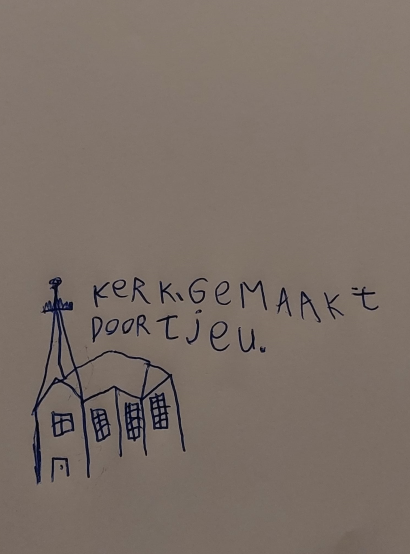 KERK.GEMAAKT
DOOR TJEU.